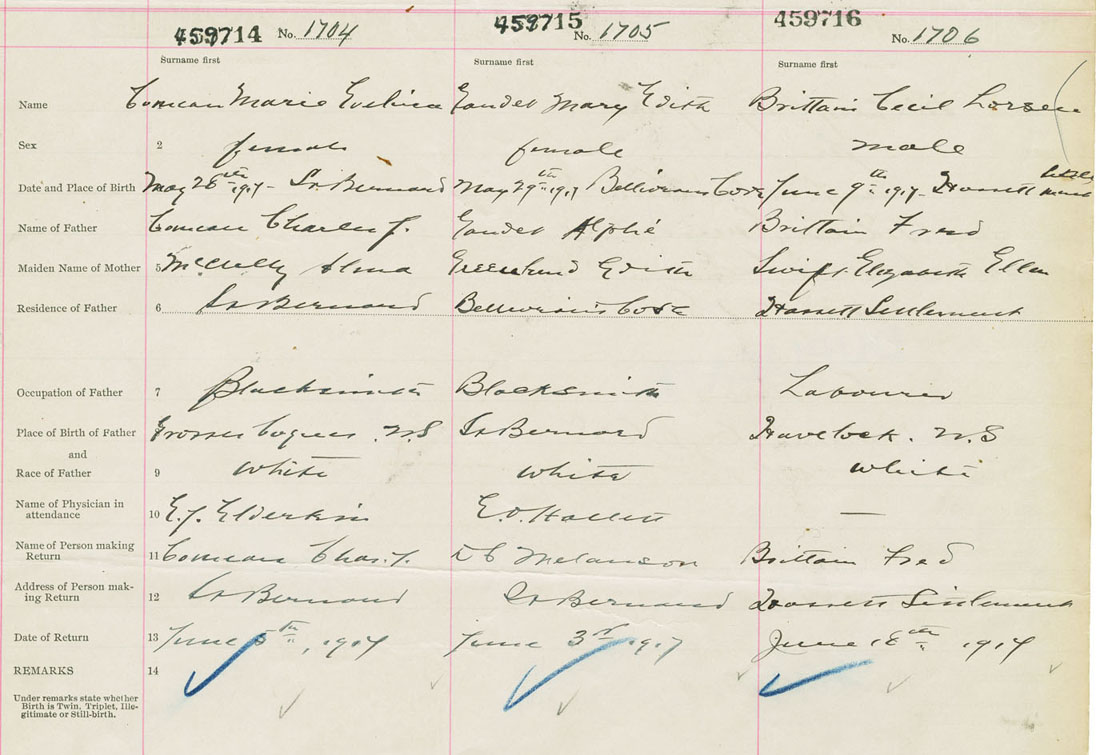 459714 No. 1704 459715 No. 1705 459716 No. 1706
Surname first Surname first Surname first
Name Comeau Marie Evelina Gaudet Mary Edith Brittain Cecil Larsen
Sex 2 female female male
Date and Place of Birth May 28th 1917 - St Bernard May 29th 1917 Belliveau's Cove June 9th 1917 - Hassett Settlement
Name of Father Comeau Charles J. Gaudet Alphé Brittain Fred
Maiden Name of Mother 5 McCully Alma Edith Swift Elizabeth Ellen
Residence of Father 6 St Bernard Belliveau's Cove Hassett Settlement
Occupation of Father 7 Blacksmith Blacksmith Labourer
Place of Birth of Father Grosses Coques N.S St Bernard Havelock. N.S
and
Race of Father 9 White White White
Name of Physician in
attendance 10 E.J. Elderkin E.O. Hallett —
Name of Person making
Return 11 Comeau Chas. J. Melanson Brittain Fred
Address of Person mak-
ing Return 12 St Bernard St Bernard Hassett Settlement
Date of Return 13 June 5th, 1917 June 3rd 1917 June 18th 1917
REMARKS 14
Under remarks state whether
Birth is Twin, Triplet, Ille-
gitimate or Still-birth.